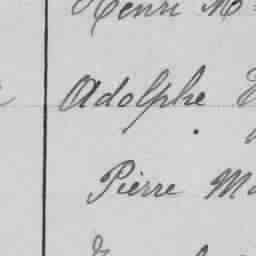 Henri M
Adolphe
Pierre Ma